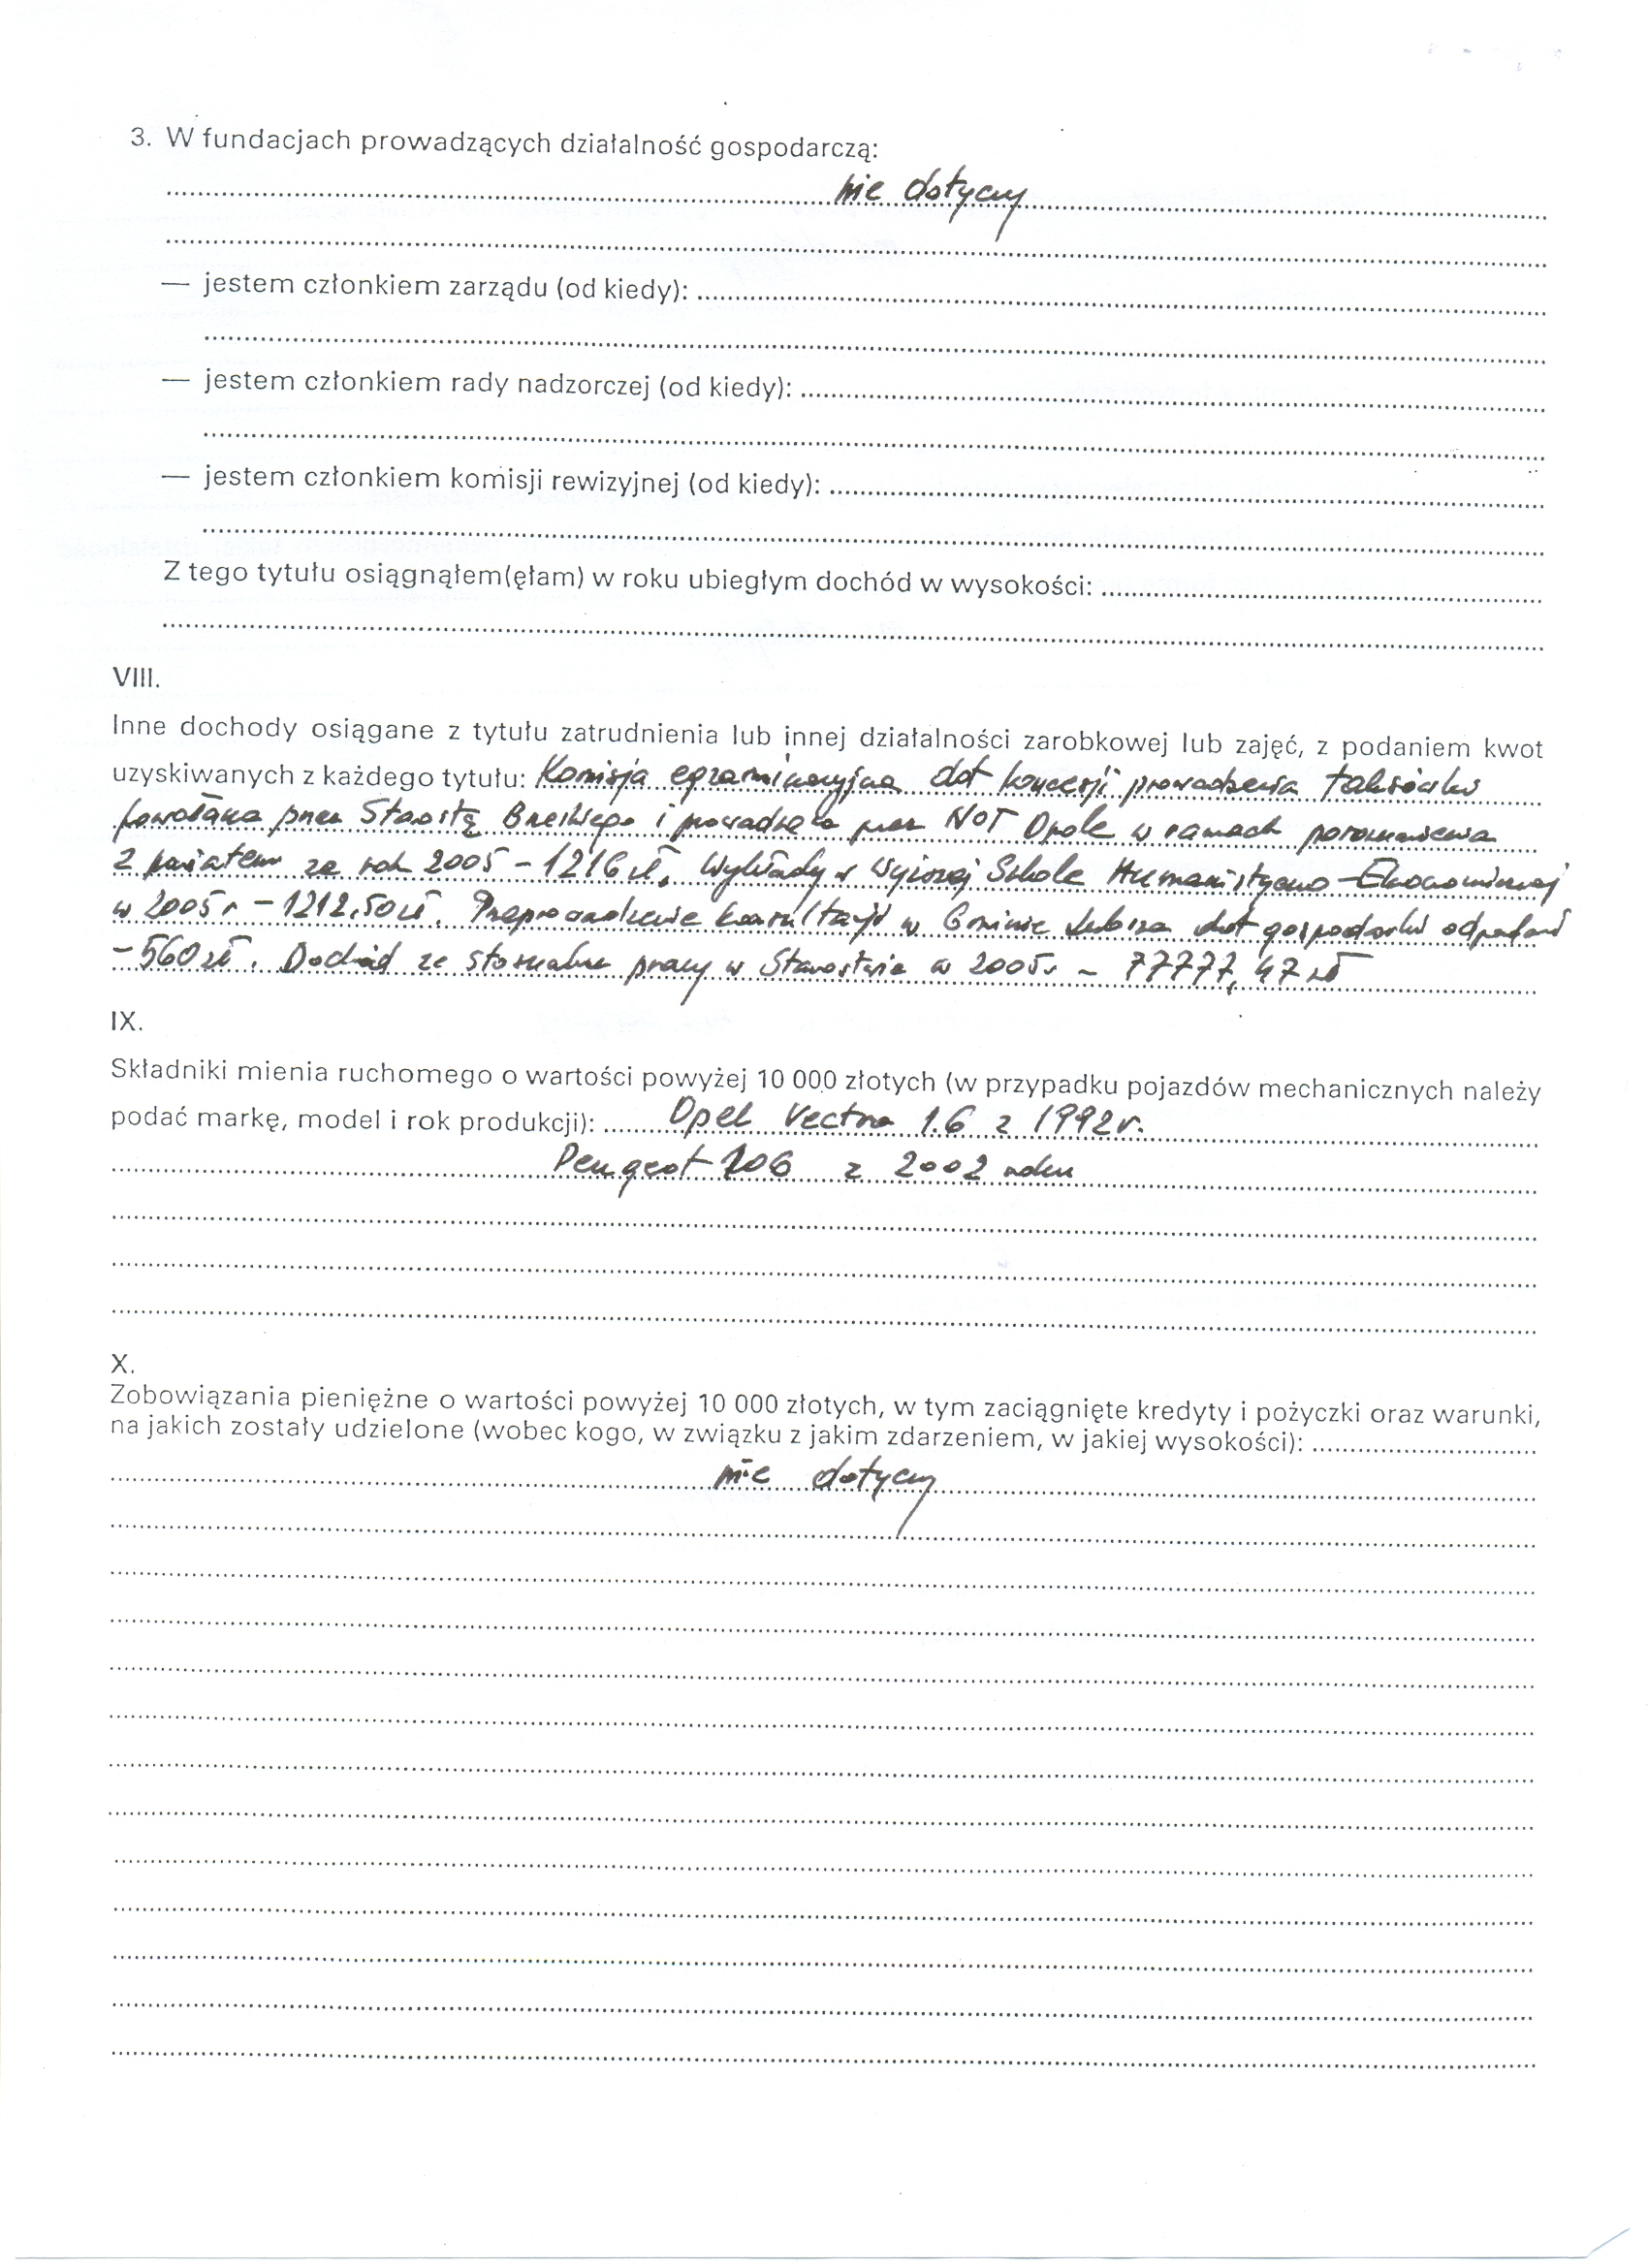 3. W fundacjach prowadzących działalność gospodarczą:
nie dotyczy
— jestem członkiem zarządu (od kiedy):
— jestem członkiem rady nadzorczej (od kiedy):
— jestem członkiem komisji rewizyjnej (od kiedy):
Z tego tytułu osiągnąłem(ęłam) w roku ubiegłym dochód w wysokości:
VIII.
Inne dochody osiągane z tytułu zatrudnienia lub innej działalności zarobkowej lub zajęć, z podaniem kwot
uzyskiwanych z każdego tytułu: Komisja egzaminacyjna dot koncesji prowadzenia taksówki
powołana przez Starostę Brzeskiego i prowadzona przez NOT Opole w ramach porozumienia
z powiatem za rok 2005 - 1216 zł. Wykłady w Wyższej Szkole Humanistyczno-Ekonomicznej
w 2005 r - 1212,50 zł. Przeprowadzenie konsultacji w Gminie Lubsza dot gospodarki odpadami
- 560 zł. Dochód ze stosunku pracy w Starostwie w 2005r - 77777,47 zł
IX.
Składniki mienia ruchomego o wartości powyżej 10 000 złotych (w przypadku pojazdów mechanicznych należy
podać markę, model i rok produkcji): Opel Vectra 1.6 z 1992r.
Peugeot 206 z 2002 roku
X.
Zobowiązania pieniężne o wartości powyżej 10 000 złotych, w tym zaciągnięte kredyty i pożyczki oraz warunki,
na jakich zostały udzielone (wobec kogo, w związku z jakim zdarzeniem, w jakiej wysokości):
nie dotyczy